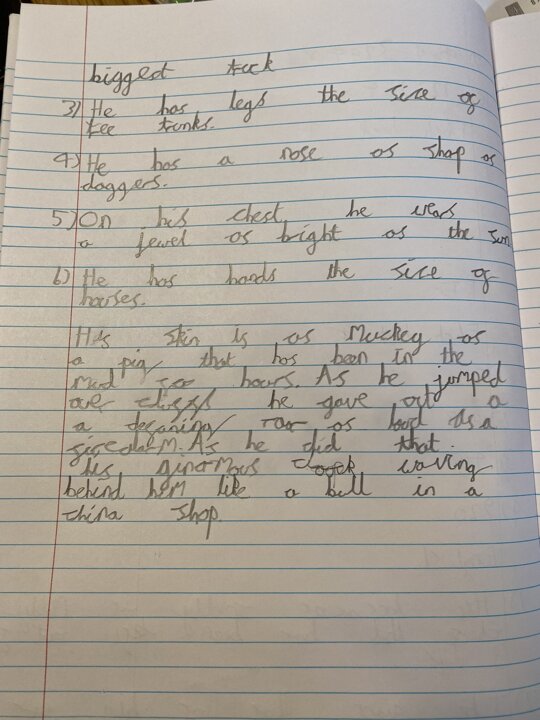 biggest truck
3) He has legs the size of
tee trunks.
4) He has a nose as shap as
daggers.
5) On his chest he wears
a jewel as bright as the sun
6) He has hands the size of
houses.
His skin is as Muckey as
a pig that has been in the
Mud for hours. As he jumped
over he gave out a
a roar as loud as a
As he did that.
his ginormous waving
behind him like a bull in a
china shop.